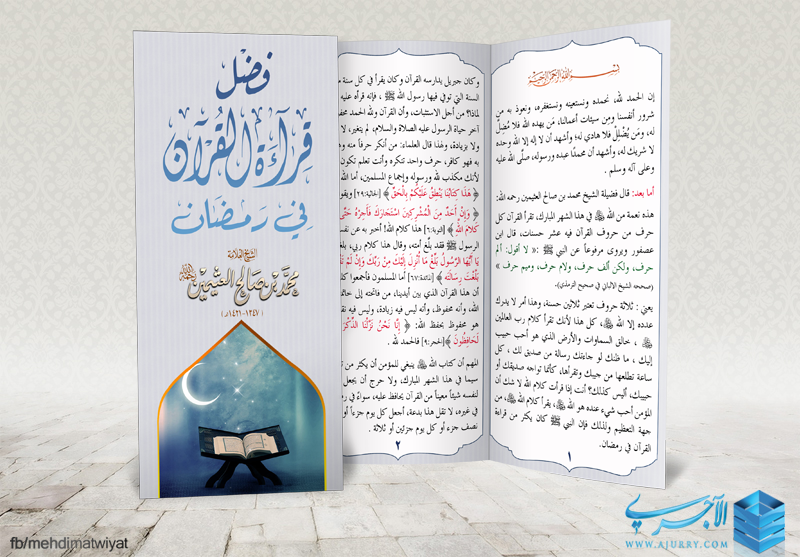 فضل
قراءة القرآن
في رمضان
الشيخ العلامة
محمد بن صالح العثيمين
(١٣٤٧-١٤٢١هـ)
إن الحمد لله، نحمده ونستعينه ونستغفره، ونعوذ به من
شرور أنفسنا ومن سيئات أعمالنا، مَن يهده الله فلا مُضِلَّ
له، ومَن يُضْلِلْ فلا هادي له؛ وأشهد أن لا إله إلا الله وحده
لا شريك له، وأشهد أن محمدًا عبده ورسوله، صلَّى الله عليه
وعلى آله وسلم .
أما بعد: قال فضيلة الشيخ محمد بن صالح العثيمين رحمه الله:
هذه نعمة من الله ﷻ في هذا الشهر المبارك، تقرأ القرآن كل
حرف من حروف القرآن فيه عشر حسنات، قال ابن
عصفور ويروى مرفوعاً عن النبي ﷺ :« لا أقول: ألم
حرف، ولكن ألف حرف، ولام حرف، وميم حرف »
(صححه الشيخ الألباني في صحيح الترمذي).
يعني : ثلاثة حروف تعتبر ثلاثين حسنة، وهذا أمر لا يدرك
عدده إلا الله ﷻ، كل هذا لأنك تقرأ كلام رب العالمين
ﷻ ، خالق السماوات والأرض الذي هو أحب حبيب
إليك ، ما ظنك لو جاءتك رسالة من صديق لك ، كل
ساعة تطلعها من جيبك وتقرأها، كأنما تواجه صديقك أو
حبيبك، أليس كذلك؟ أنت إذا قرأت كلام الله لا شك أن
المؤمن أحب شيء عنده هو الله ﷻ، يقرأ كلام الله ﷻ، من
جهة التعظيم ولذلك فإن النبي ﷺ كان يكثر من قراءة
القرآن في رمضان.
١
وكان جبريل يدارسه القرآن وكان يقرأ في كل سنة
السنة التي توفي فيها رسول الله ﷺ ، فإنه قرأه عليه
لماذا؟ من أجل الاستثبات، وأن القرآن ولله الحمد
آخر حياة الرسول عليه الصلاة والسلام، لم يتغير، لا
ولا بزيادة، ولهذا قال العلماء: من أنكر حرفاً منه
به فهو كافر، حرف واحد تنكره وأنت تعلم تكون
لأنك مكذب لله ورسوله وإجماع المسلمين، أما الله
﴿ هَذَا كِتَابُنَا يَنْطِقُ عَلَيْكُمْ بِالْحَقِّ ﴾ [الجاثية:٢٩]
﴿ وَإِنْ أَحَدٌ مِنَ الْمُشْرِكِينَ اسْتَجَارَكَ فَأَجِرْهُ حَتَّى
كَلَامَ اللَّهِ ﴾ [التوبة:٦] هذا كلام الله! أخبر به عن نفسه
الرسول ﷺ فقد بلغ أمته، وقال هذا كلام ربي،
يَا أَيُّهَا الرَّسُولُ بَلِّغْ مَا أُنْزِلَ إِلَيْكَ مِنْ رَبِّكَ وَإِنْ لَمْ
بَلَّغْتَ رِسَالَتَهُ ﴾ [المائدة:٦٧] أما المسلمون فأجمعوا
أن هذا القرآن الذي بين أيدينا، من فاتحته إلى
الله، وأنه محفوظ، وأنه ليس فيه زيادة، وليس فيه
هو محفوظ بحفظ الله: ﴿ إِنَّا نَحْنُ نَزَّلْنَا الذِّكْرَ
لَحَافِظُونَ ﴾ [الحجر:٩] فالحمد لله .
المهم أن كتاب الله ﷻ ينبغي للمؤمن أن يكثر
سيما في هذا الشهر المبارك، ولا حرج أن يجعل
لنفسه شيئاً معيناً من القرآن يحافظ عليه، سواءً في
في غيره، لا تقل هذا بدعة، أجعل كل يوم جزءاً أو
نصف جزء أو كل يوم جزئين أو ثلاثة .
٢
fb/mehdimatwiyat
الآجري
WWW.AJURRY.COM